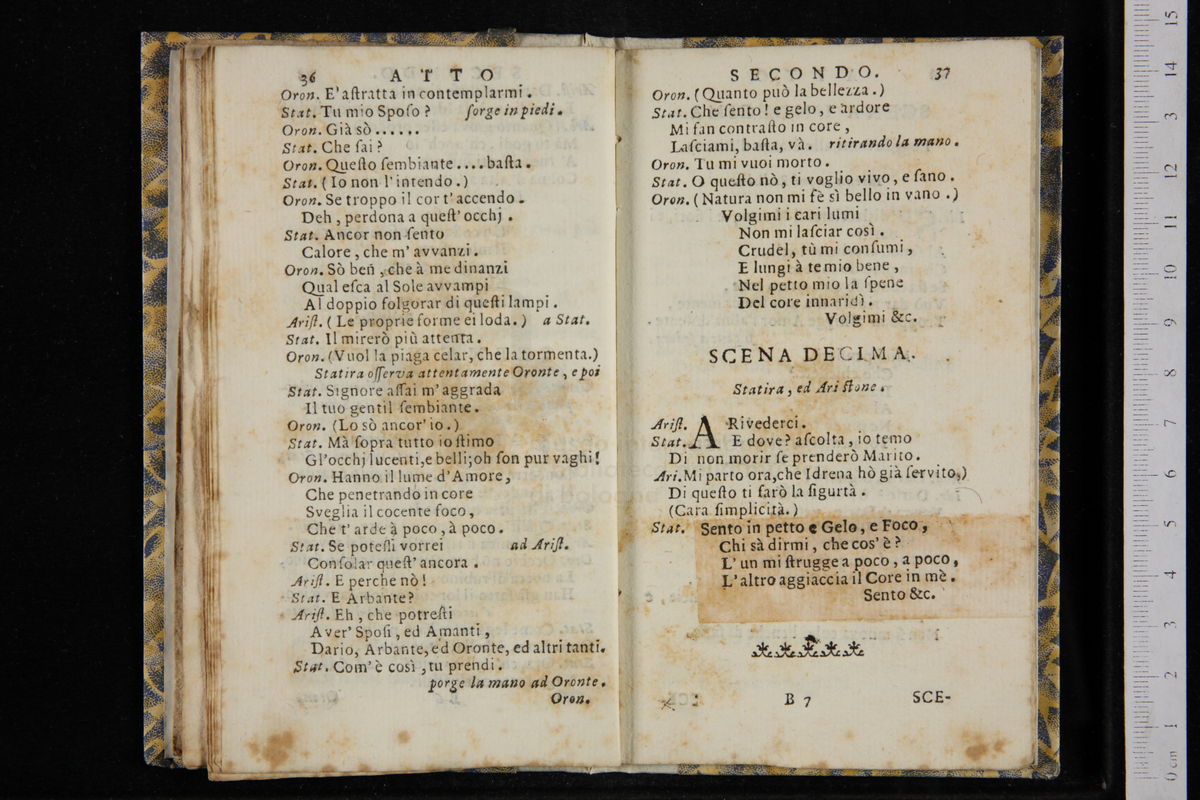 36 ATTO
Oron. E' aſtratta in contemplarmi.
Stat. Tu mio Spoſo? ſorge in piedi.
Oron. Già sò......
Stat. Che ſai?
Oron. Queſto ſembiante.... baſta.
Stat. (Io non l'intendo.)
Oron. Se troppo il cor t'accendo.
Deh, perdona a queſt' occhj.
Stat. Ancor non ſento
Calore, che m' avvanzi.
Oron. Sò ben, che à me dinanzi
Qual eſca al Sole avvampi
Al doppio folgorar di queſti lampi.
Ariſt. (Le proprie forme ei loda.) a Stat.
Stat. Il mirerò più attenta.
Oron. (Vuol la piaga celar, che la tormenta.)
Statira oſſerva attentamente Oronte, e poi
Stat. Signore aſſai m'aggrada
Il tuo gentil ſembiante.
Oron. (Lo sò ancor'io.)
Stat. Mà ſopra tutto io ſtimo
Gl'occhj lucenti,e belli;oh ſon pur vaghi!
Oron. Hanno il lume d'Amore,
Che penetrando in core
Sveglia il cocente foco,
Che t' arde à poco, à poco.
Stat. Se poteſſi vorrei ad Ariſt.
Conſolar queſt' ancora.
Ariſt. E perche nò!
Stat. E Arbante?
Ariſt. Eh, che potreſti
Aver' Spoſi, ed Amanti,
Dario, Arbante,ed Oronte, ed altri tanti.
Stat. Com' è così, tu prendi.
porge la mano ad Oronte.
Oron.
SECONDO. 37
Oron. (Quanto può la bellezza.)
Stat. Che ſento! e gelo, e ardore
Mi fan contraſto in core,
Laſciami, baſta, và. ritirando la mano.
Oron. Tu mi vuoi morto.
Stat. O queſto nò, ti voglio vivo, e ſano.
Oron. (Natura non mi fè sì bello in vano.)
Volgimi i cari lumi
Non mi laſciar così.
Crudel, tù mi conſumi,
E lungi à te mio bene,
Nel petto mio la ſpene
Del core innaridì.
Volgimi &c.
SCENA DECIMA.
Statira, ed Ariſtone.
Ariſt. A Rivederci.
Stat. E dove? aſcolta, io temo
Di non morir ſe prenderò Marito.
Ari. Mi parto ora,che Idrena hò già ſervito,)
Di queſto ti farò la ſigurtà.
(Cara ſimplicità.)
Stat. Sento in petto e Gelo, e Foco,
Chi sà dirmi, che cos' è?
L' un mi ſtrugge a poco, a poco,
L'altro aggiaccia il Core in mè.
Sento &c.
B 7 SCE-
0 cm 1 2 3 4 5 6 7 8 9 10 11 12 3 14 15